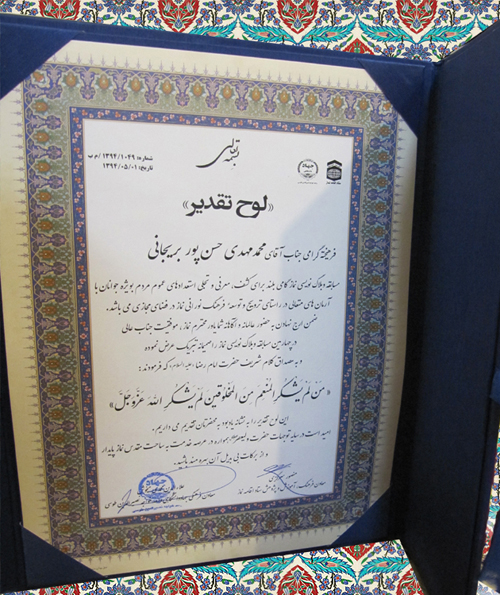 بسمه تعالی
شماره: ۱۳۹۴/۱۰۴۹/م ب
تاریخ: ۱۳۹۴/۰۵/۰۱
«لوح تقدیر»
فرهیخته گرامی جناب آقای محمدمهدی حسن پور بریجانی
مسابقه وبلاگ نویسی نماز گامی بلند برای کشف، معرفی و تجلی استعدادهای عموم مردم بویژه جوانان با
آرمان های متعالی در راستای ترویج و توسعه فرهنگ نورانی نماز در فضای مجازی می باشد.
ضمن ارج نهادن به حضور عالمانه و آگاهانه شما یاور محترم نماز، موفقیت جناب عالی
در چهارمین مسابقه وبلاگ نویسی نماز را صمیمانه تبریک عرض نموده
و به مصداق کلام شریف حضرت امام رضا (علیه السلام) که فرمودند:
«مَن لَم یَشکُرِ المُنعِمَ مِنَ المَخلوقینَ لَم یَشکُرِ اللهَ عَزَّوَجَلَّ»
این لوح تقدیر را به نشانه یادبود به محضرتان تقدیم می داریم.
امید است در سایه توجهات حضرت ولیعصر همواره در عرصه خدمت به ساحت مقدس نماز پایدار
و از برکات بی بدیل آن بهره مند باشید.
معاون فرهنگی، آموزش و پژوهش ستاد اقامه نماز